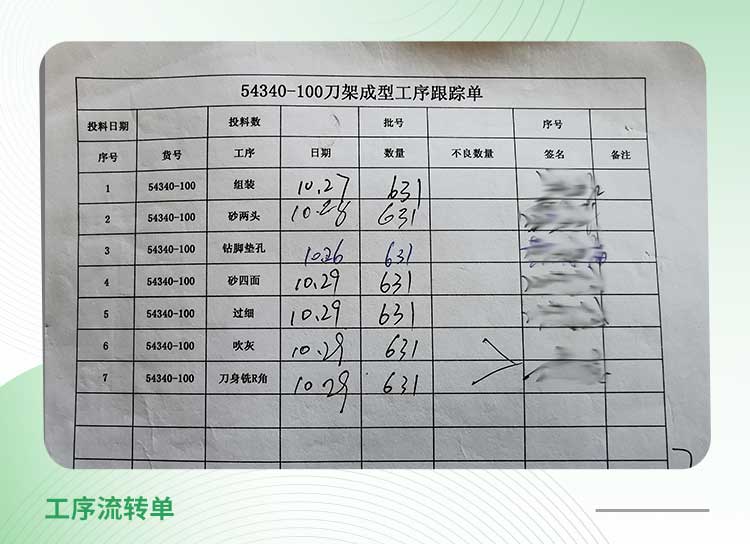 54340-100刀架成型工序跟踪单
投料日期 投料数 批号 序号
序号 货号 工序 日期 数量 不良数量 签名 备注
1 54340-100 组装 10.27 631
2 54340-100 砂两头 10.28 631
3 54340-100 钻脚垫孔 10.26 631
4 54340-100 砂四面 10.29 631
5 54340-100 过细 10.29 631
6 54340-100 吹灰 10.29 631
7 54340-100 刀身铣R角 10.29 631
工序流转单